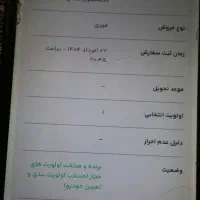 نوع فروش
فوری
زمان ثبت سفارش
07 مرداد 1404 - ساعت
20:45
موعد تحویل
-
اولویت انتخابی
1
دلیل عدم احراز
-
وضعیت
برنده و منتخب اولویت های
مجاز (منتخب اولویت بندی و
تعیین خودرو)